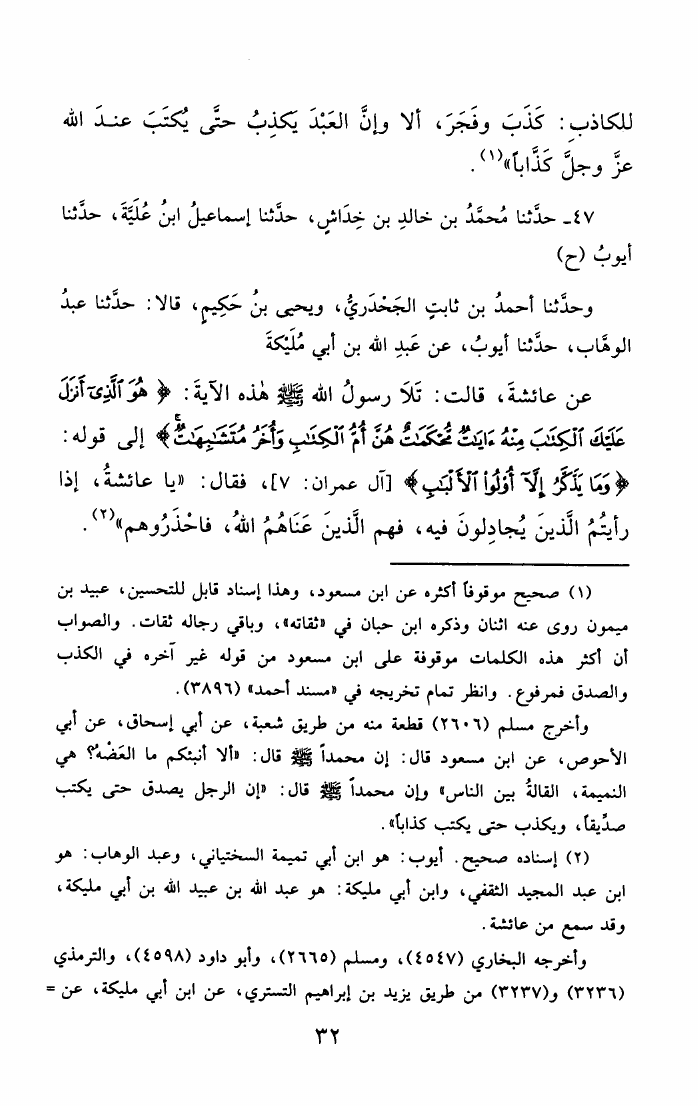 للكاذبِ: كَذَبَ وفَجَرَ، ألا وإنَّ العَبْدَ يَكذِبُ حتَّى يُكتَبَ عنـدَ الله
عزَّ وجلَّ كَذَّاباً»(١).
٤٧ـ حدَّثنا مُحمَّدُ بن خالدِ بن خِدَاشٍ، حدَّثنا إسماعيلُ ابنُ عُلَيَّةَ، حدَّثنا
أيوبُ (ح)
وحدَّثنا أحمدُ بن ثابتٍ الجَحْدَريُّ، ويحيى بنُ حَكِيمٍ، قالا: حدَّثنا عبدُ
الوهَّاب، حدَّثنا أيوبُ، عن عَبدِ الله بن أبي مُلَيْكةَ
عن عائشةَ، قالت: تَلَا رسولُ الله ﷺ هٰذه الآيةَ: ﴿هُوَ ٱلَّذِىٓ أَنزَلَ
عَلَيْكَ ٱلْكِتَٰبَ مِنْهُ ءَايَٰتٌ مُّحْكَمَٰتٌ هُنَّ أُمُّ ٱلْكِتَٰبِ وَأُخَرُ مُتَشَٰبِهَٰتٌ﴾ إلى قوله:
﴿وَمَا يَذَّكَّرُ إِلَّآ أُوْلُواْ ٱلْأَلْبَٰبِ﴾ [آل عمران: ٧]، فقال: «يا عائشةُ، إذا
رأيتُمُ الَّذينَ يُجادِلونَ فيه، فهم الَّذينَ عَنَاهُمُ اللهُ، فاحْذَرُوهم»(٢).
(١) صحيح موقوفاً أكثره عن ابن مسعود، وهذا إسناد قابل للتحسين، عبيد بن
ميمون روى عنه اثنان وذكره ابن حبان في «ثقاته»، وباقي رجاله ثقات. والصواب
أن أكثر هذه الكلمات موقوفة على ابن مسعود من قوله غير آخره في الكذب
والصدق فمرفوع. وانظر تمام تخريجه في «مسند أحمد» (٣٨٩٦).
وأخرج مسلم (٢٦٠٦) قطعة منه من طريق شعبة، عن أبي إسحاق، عن أبي
الأحوص، عن ابن مسعود قال: إن محمداً ﷺ قال: «ألا أنبئكم ما العَضْهُ؟ هي
النميمة، القالةُ بين الناس» وإن محمداً ﷺ قال: «إن الرجل يصدق حتى يكتب
صدِّيقاً، ويكذب حتى يكتب كذاباً».
(٢) إسناده صحيح. أيوب: هو ابن أبي تميمة السختياني، وعبد الوهاب: هو
ابن عبد المجيد الثقفي، وابن أبي مليكة: هو عبد الله بن عبيد الله بن أبي مليكة،
وقد سمع من عائشة.
وأخرجه البخاري (٤٥٤٧)، ومسلم (٢٦٦٥)، وأبو داود (٤٥٩٨)، والترمذي
(٣٢٣٦) و(٣٢٣٧) من طريق يزيد بن إبراهيم التستري، عن ابن أبي مليكة، عن =
٣٢